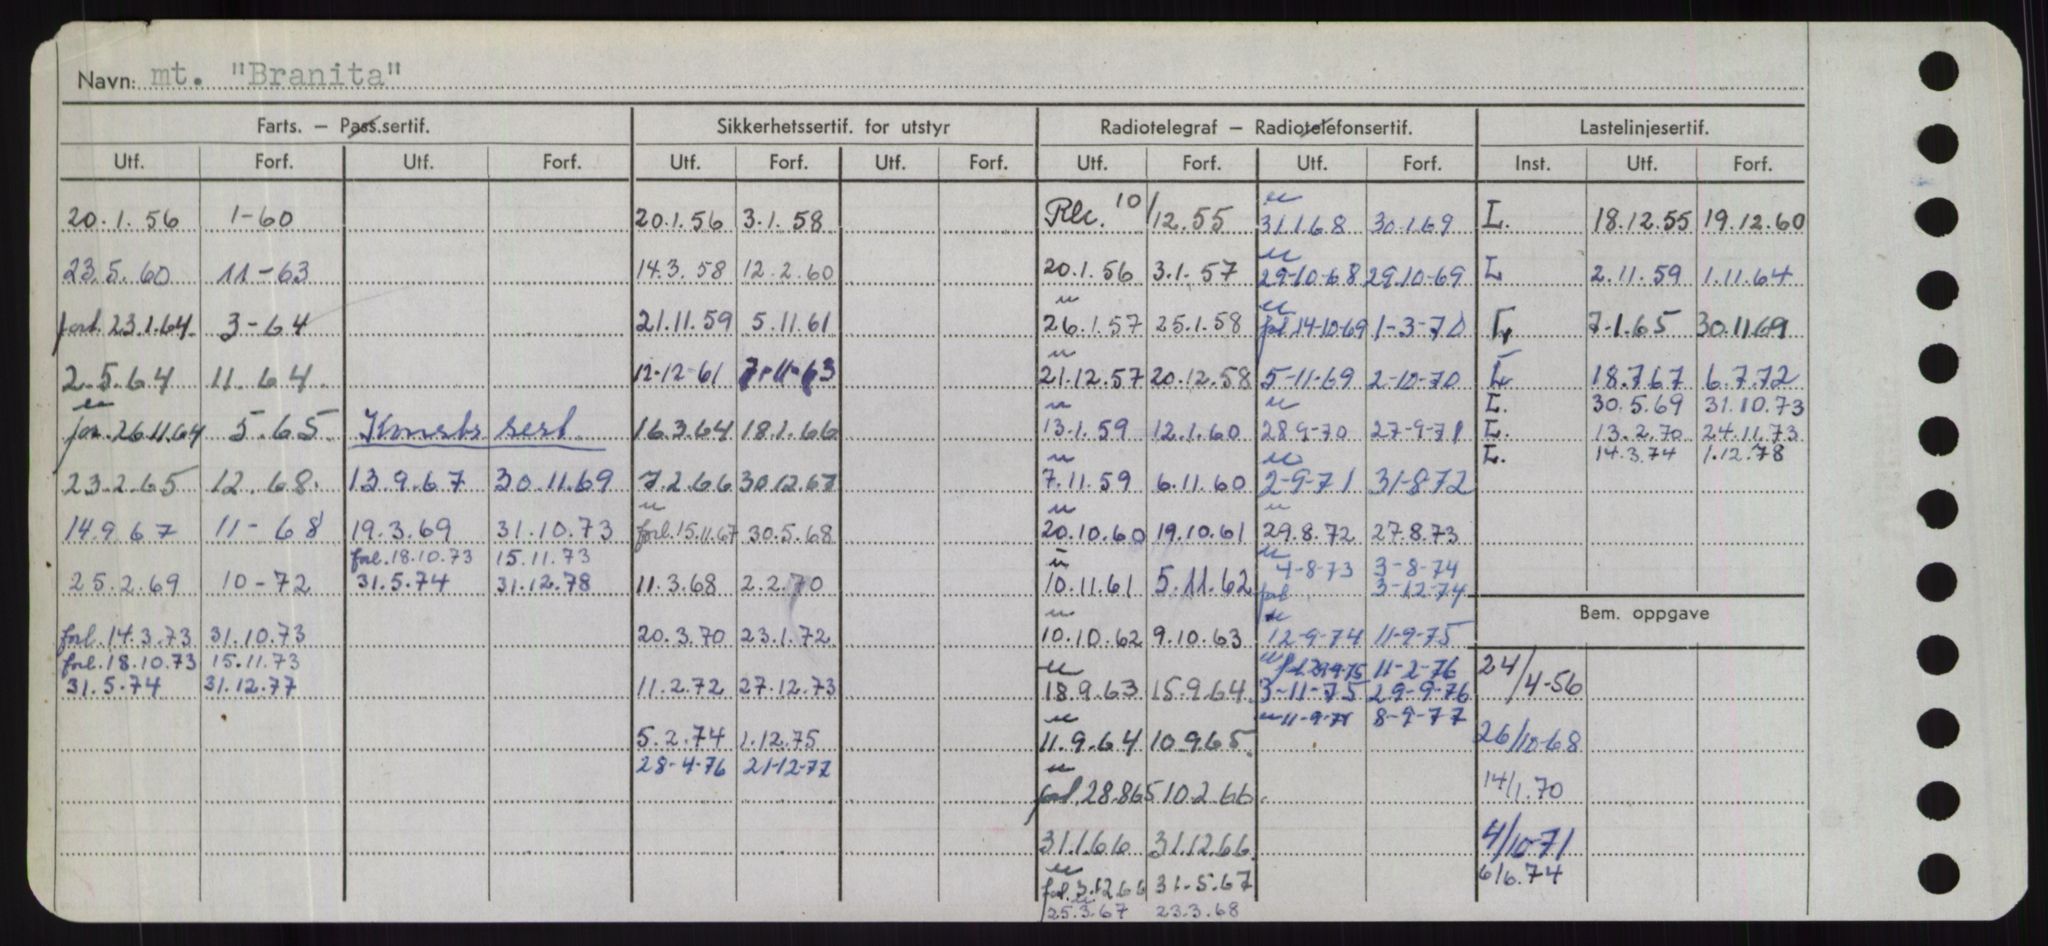 Navn: mt. "Branita"
Farts. – Pass.sertif. Sikkerhetssertif. for utstyr Radiotelegraf – Radiotelefonsertif. Lastelinjesertif.
Utf. Forf. Utf. Forf. Utf. Forf. Utf. Forf. Utf. Forf. Utf. Forf. Inst. Utf. Forf.
20.1.56 1-60 20.1.56 3.1.58 10/12.55 31.1.68 30.1.69 L. 18.12.55 19.12.60
23.5.60 11-63 14.3.58 12.2.60 20.1.56 3.1.57 29-10-68 29.10-69 L 2.11.59 1.11.64
forl. 23.1.64. 3-64 21.11.59 5.11.61 26.1.57 25.1.58 forl 14-10-69 1-3-70 L 7-1.65 30.11.69
2.5.64 11.64. 12-12-61 7-11-63 21.12.57 20.12.58 5-11-69 2-10-70 L 18.7.67 6.7.72
L. 30.5.69 31.10.73
26.11.64 5.65 16.3.64 18.1.66 13.1.59 12.1.60 28.9-70 27-9-71 L. 13.2.70 24.11.73
L. 14.3.74 1.12.78
23.2.65 12.68. 13.9.67 30.11.69 7.2.66 30.12.67 7.11.59 6.11.60 2-9-71 31-8-72
14.9.67 11-68 19.3.69 31.10.73 forl. 15.11.67 30.5.68 20.10.60 19.10.61 29.8.72 27.8.73
forl. 18.10.73 15.11.73 4-8-73 3-8-74
25.2.69 10-72 31.5.74 31.12.78 11.3.68 2.2.70 10.11.61 5.11.62 forl 3-12-74
Bem. oppgave
forl. 14.3.73 31.10.73 20.3.70 23.1.72 10.10.62 9.10.63 12-9-74 11-9-75
forl. 18.10.73 15.11.73 11-2-76 24/4-56
31.5.74 31.12.77 11.2.72 27.12.73 18.9.63 15.9.64 3-11-75 29-9-76
8-9-77
5.2.74 1.12.75 11.9.64 10.9.65 26/10-68
28-4-76 21-12-77
forl. 28.8.65 10.2.66 14/1.70
31.1.66 31.12.66 4/10-71
forl. 3.12.66 31.5.67 6/6.74
25.3.67 23.3.68